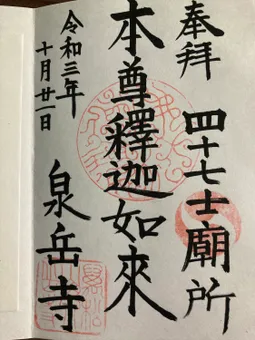 奉拝 四十七士廟所
本尊釋迦如來
令和三年
十月廿一日
泉岳寺